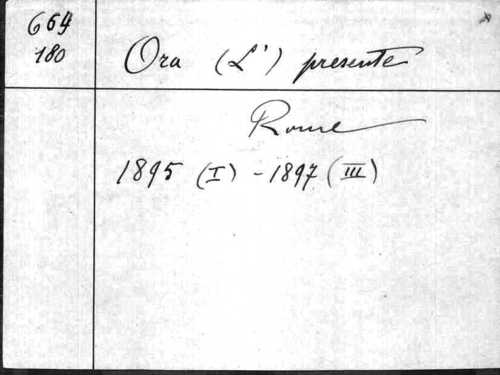 664
180
Ora (L') presente
Rome
1895 (I) - 1897 (III)